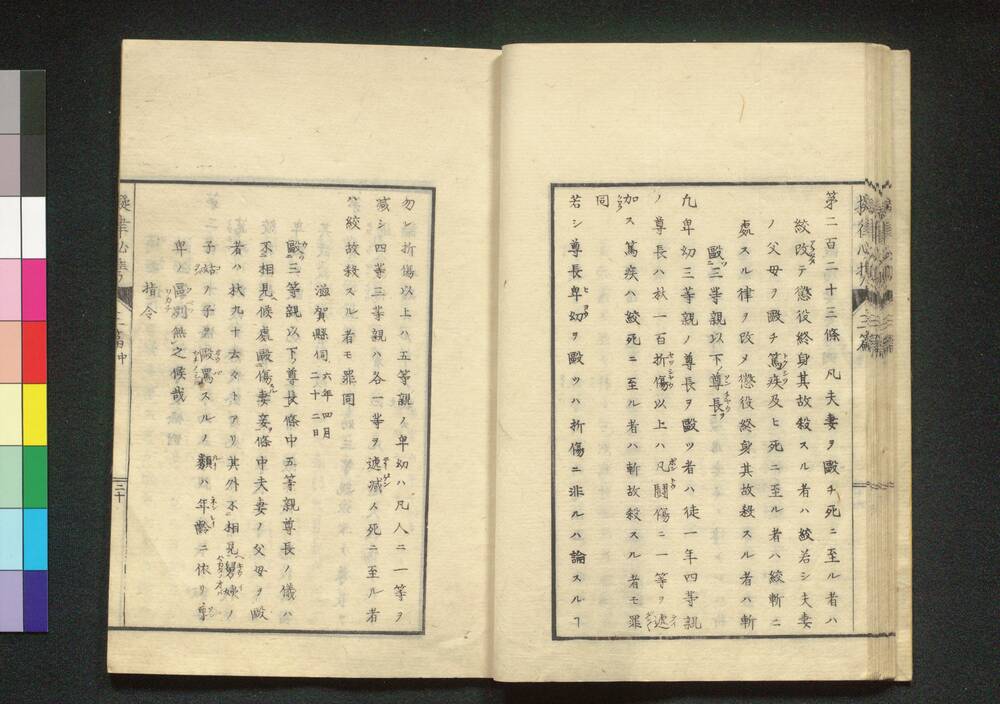 第二百二十三條 凡夫妻ヲ毆チ死ニ至ル者ハ
絞改テ懲役終身其故殺スル者ハ絞若シ夫妻
ノ父母ヲ毆チ篤疾及ヒ死ニ至ル者ハ絞斬ニ
處スル律ヲ改メ懲役終身其故殺スル者ハ斬
毆三等親以下尊長
凡卑幼三等親ノ尊長ヲ毆ツ者ハ徒一年四等親
ノ尊長ハ杖一百折傷以上ハ凡鬪傷ニ一等ヲ遞
加ス篤疾ハ絞死ニ至ル者ハ斬故殺スル者モ罪
同
若シ尊長卑幼ヲ毆ツハ折傷ニ非ルハ論スルヿ
勿レ折傷以上ハ五等親ノ卑幼ハ凡人ニ一等ヲ
減シ四等三等親ハ各一等ヲ遞減ス死ニ至ル者
ハ絞故殺スル者モ罪同
滋賀縣伺 六年四月二十二日
毆三等親以下ノ尊長條中五等親尊長ノ儀ハ
不相見候處毆傷妻妾條中夫妻ノ父母ヲ毆
者ハ杖九十去々トアリ其外不相見舅姨ノ
子姑ノ子毆罵スルノ類ハ年齡ニ依リ尊
卑ノ區別無之候哉
指令
二篇中
三十